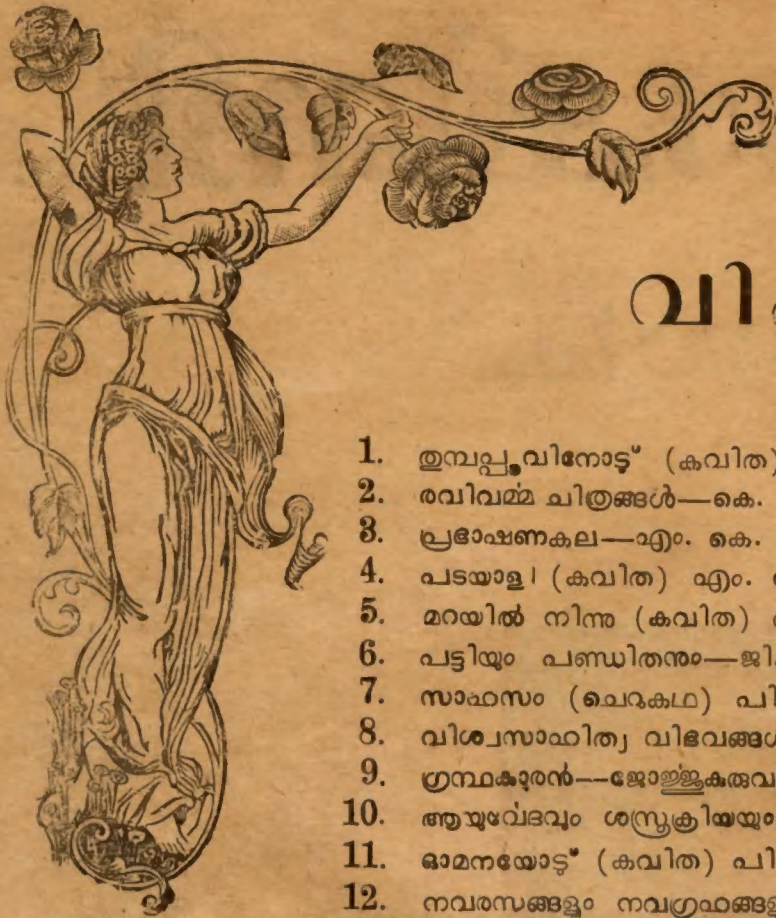 വി
1. തുമ്പപ്പൂവിനോടു് (കവിത)
2. രവിവൎമ്മ ചിത്രങ്ങൾ—കെ.
3. പ്രഭാഷണകല—എം. കെ.
4. പടയാളി (കവിത) എം.
5. മറയിൽ നിന്നു (കവിത)
6. പട്ടിയും പണ്ഡിതനും—ജി.
7. സാഹസം (ചെറുകഥ) പി
8. വിശ്വസാഹിത്യ വിഭവങ്ങൾ
9. ഗ്രന്ഥകാരൻ—ജോൎജ്ജുകുരുവ
10. ആയുൎവേദവും ശസ്ത്രക്രിയയും
11. ഓമനയോടു് (കവിത) പി
12. നവരസങ്ങളും നവഗ്രഹങ്ങള